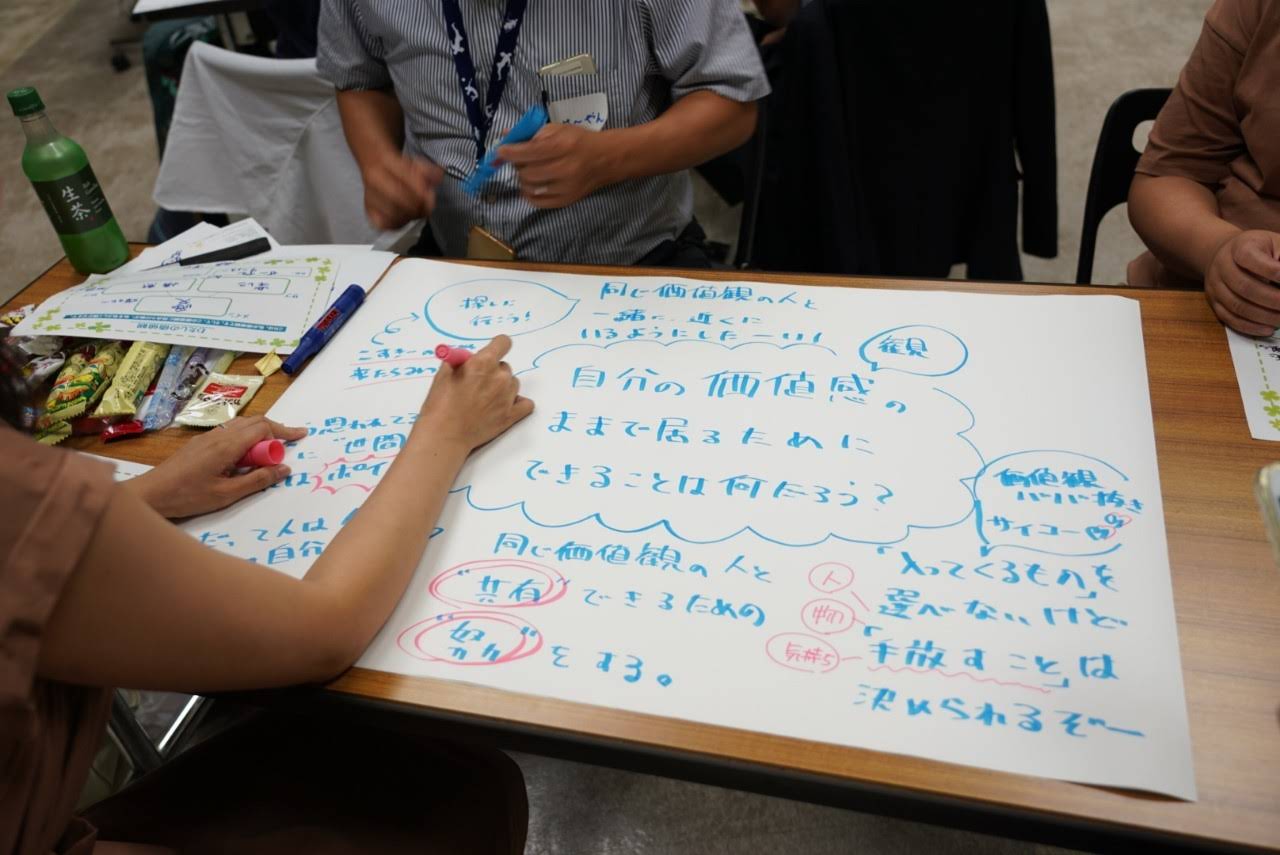 生茶
わたしの価値観
探しに
行こう!
同じ価値観の人と
一緒に、近くに
いるようにしたーい!
観
自分の価値感の
ままで居るために
できることは何だろう?
思われてる
に"世間
は ポイ
だって人は
自分
価値観
ババ抜き
サイコー
同じ価値観の人と
"共有"できるための
"好
をする。
人
物
気持ち
「入ってくるもの」を
選べないけど
「手放すこと」は
決められるぞー